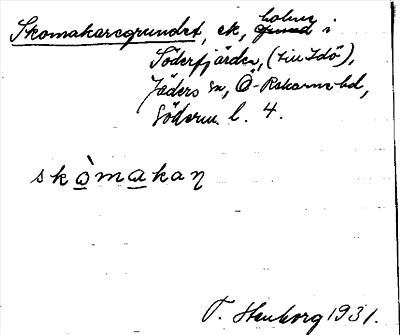 Skomakaregrundet, ek, holme i
Söderfjärden, (till Idö),
Jäders sn, Ö-Rekarne hd,
Söderm. l. 4.
skò̱ma̱kaꞃ
1931.